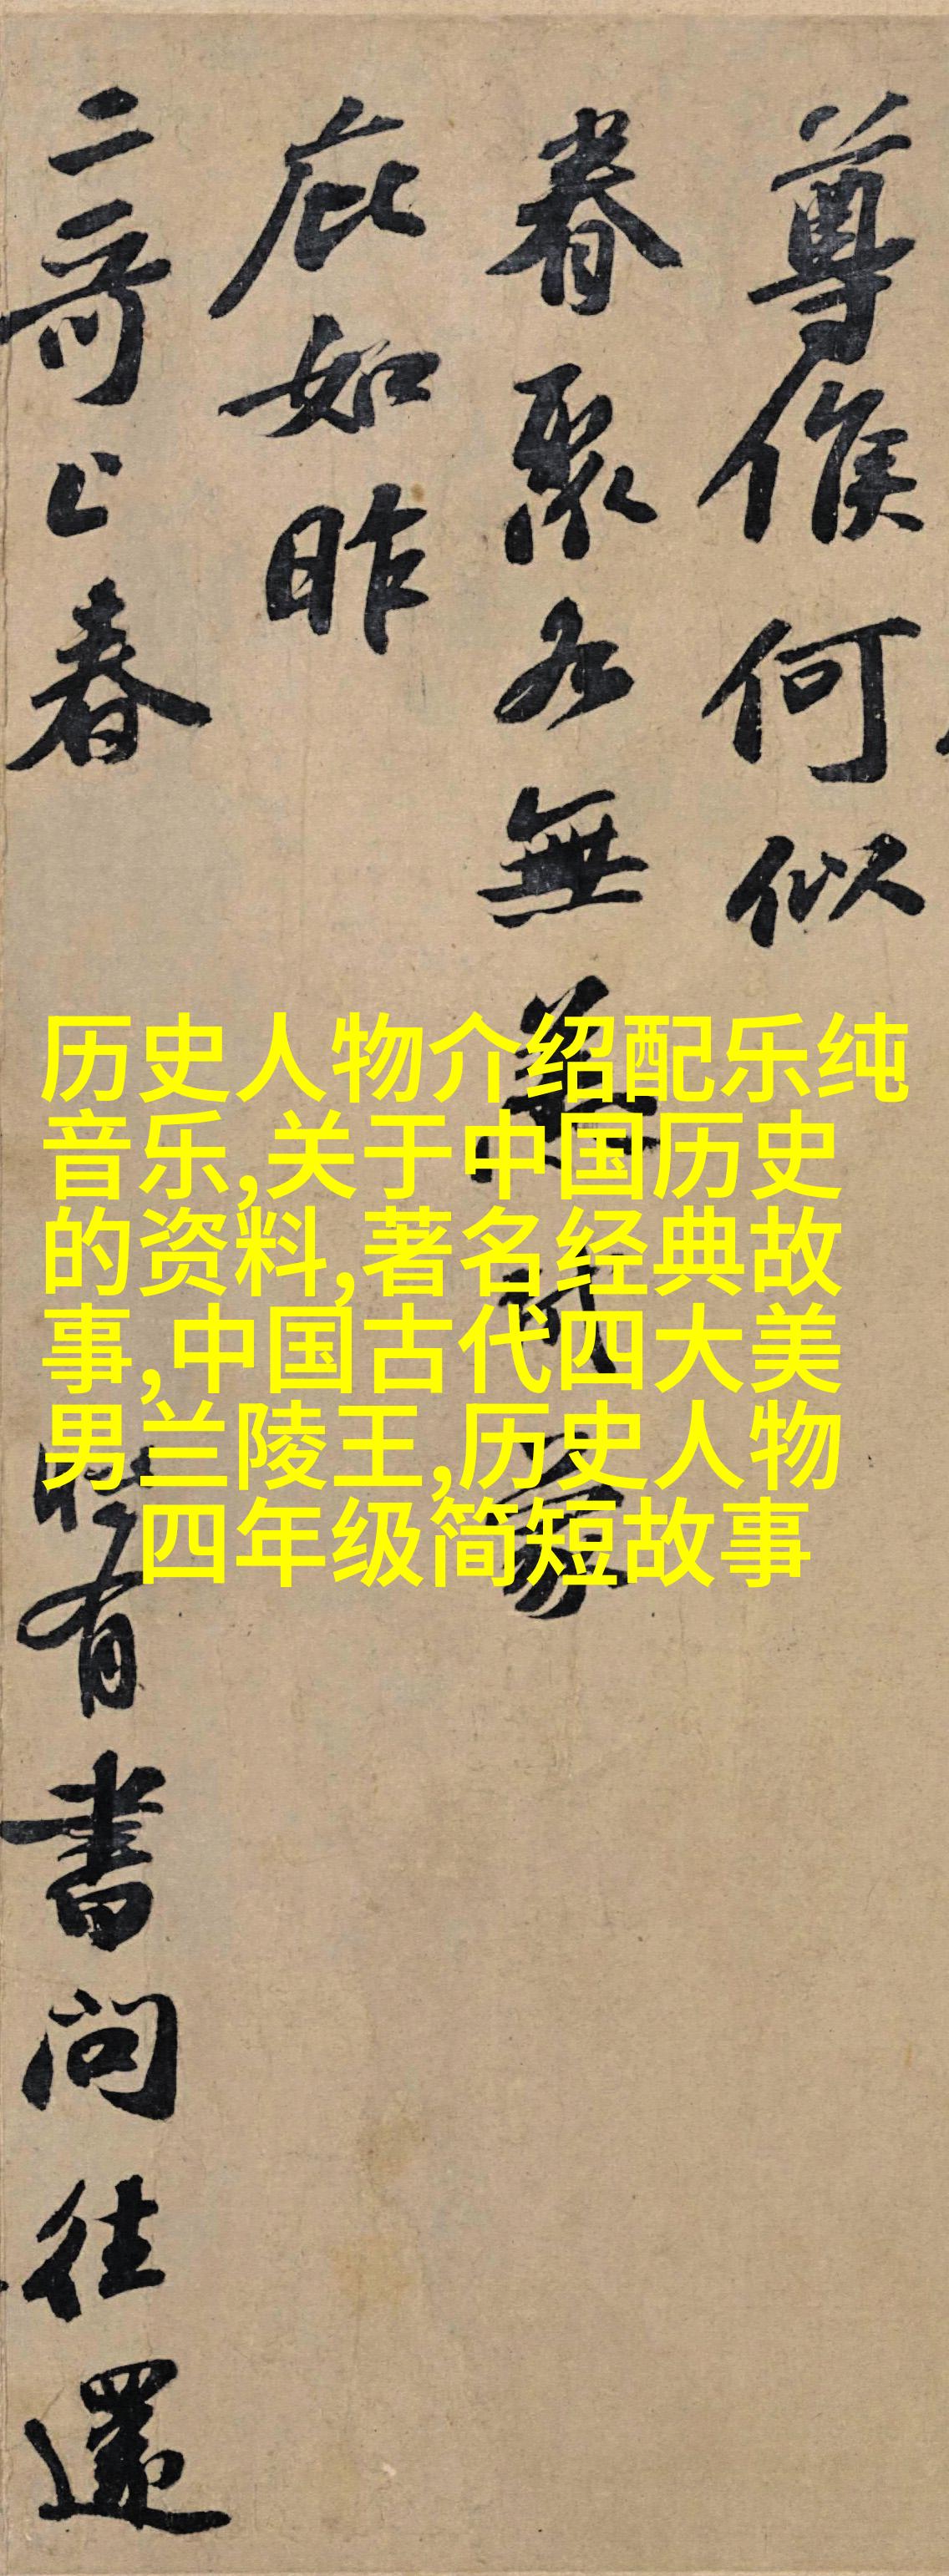 尊候何似
眷聚各無恙門蒙
庇如昨
二哥上春
時有書問往還
历史人物介绍配乐纯
音乐,关于中国历史
的资料,著名经典故
事,中国古代四大美
男兰陵王,历史人物
四年级简短故事